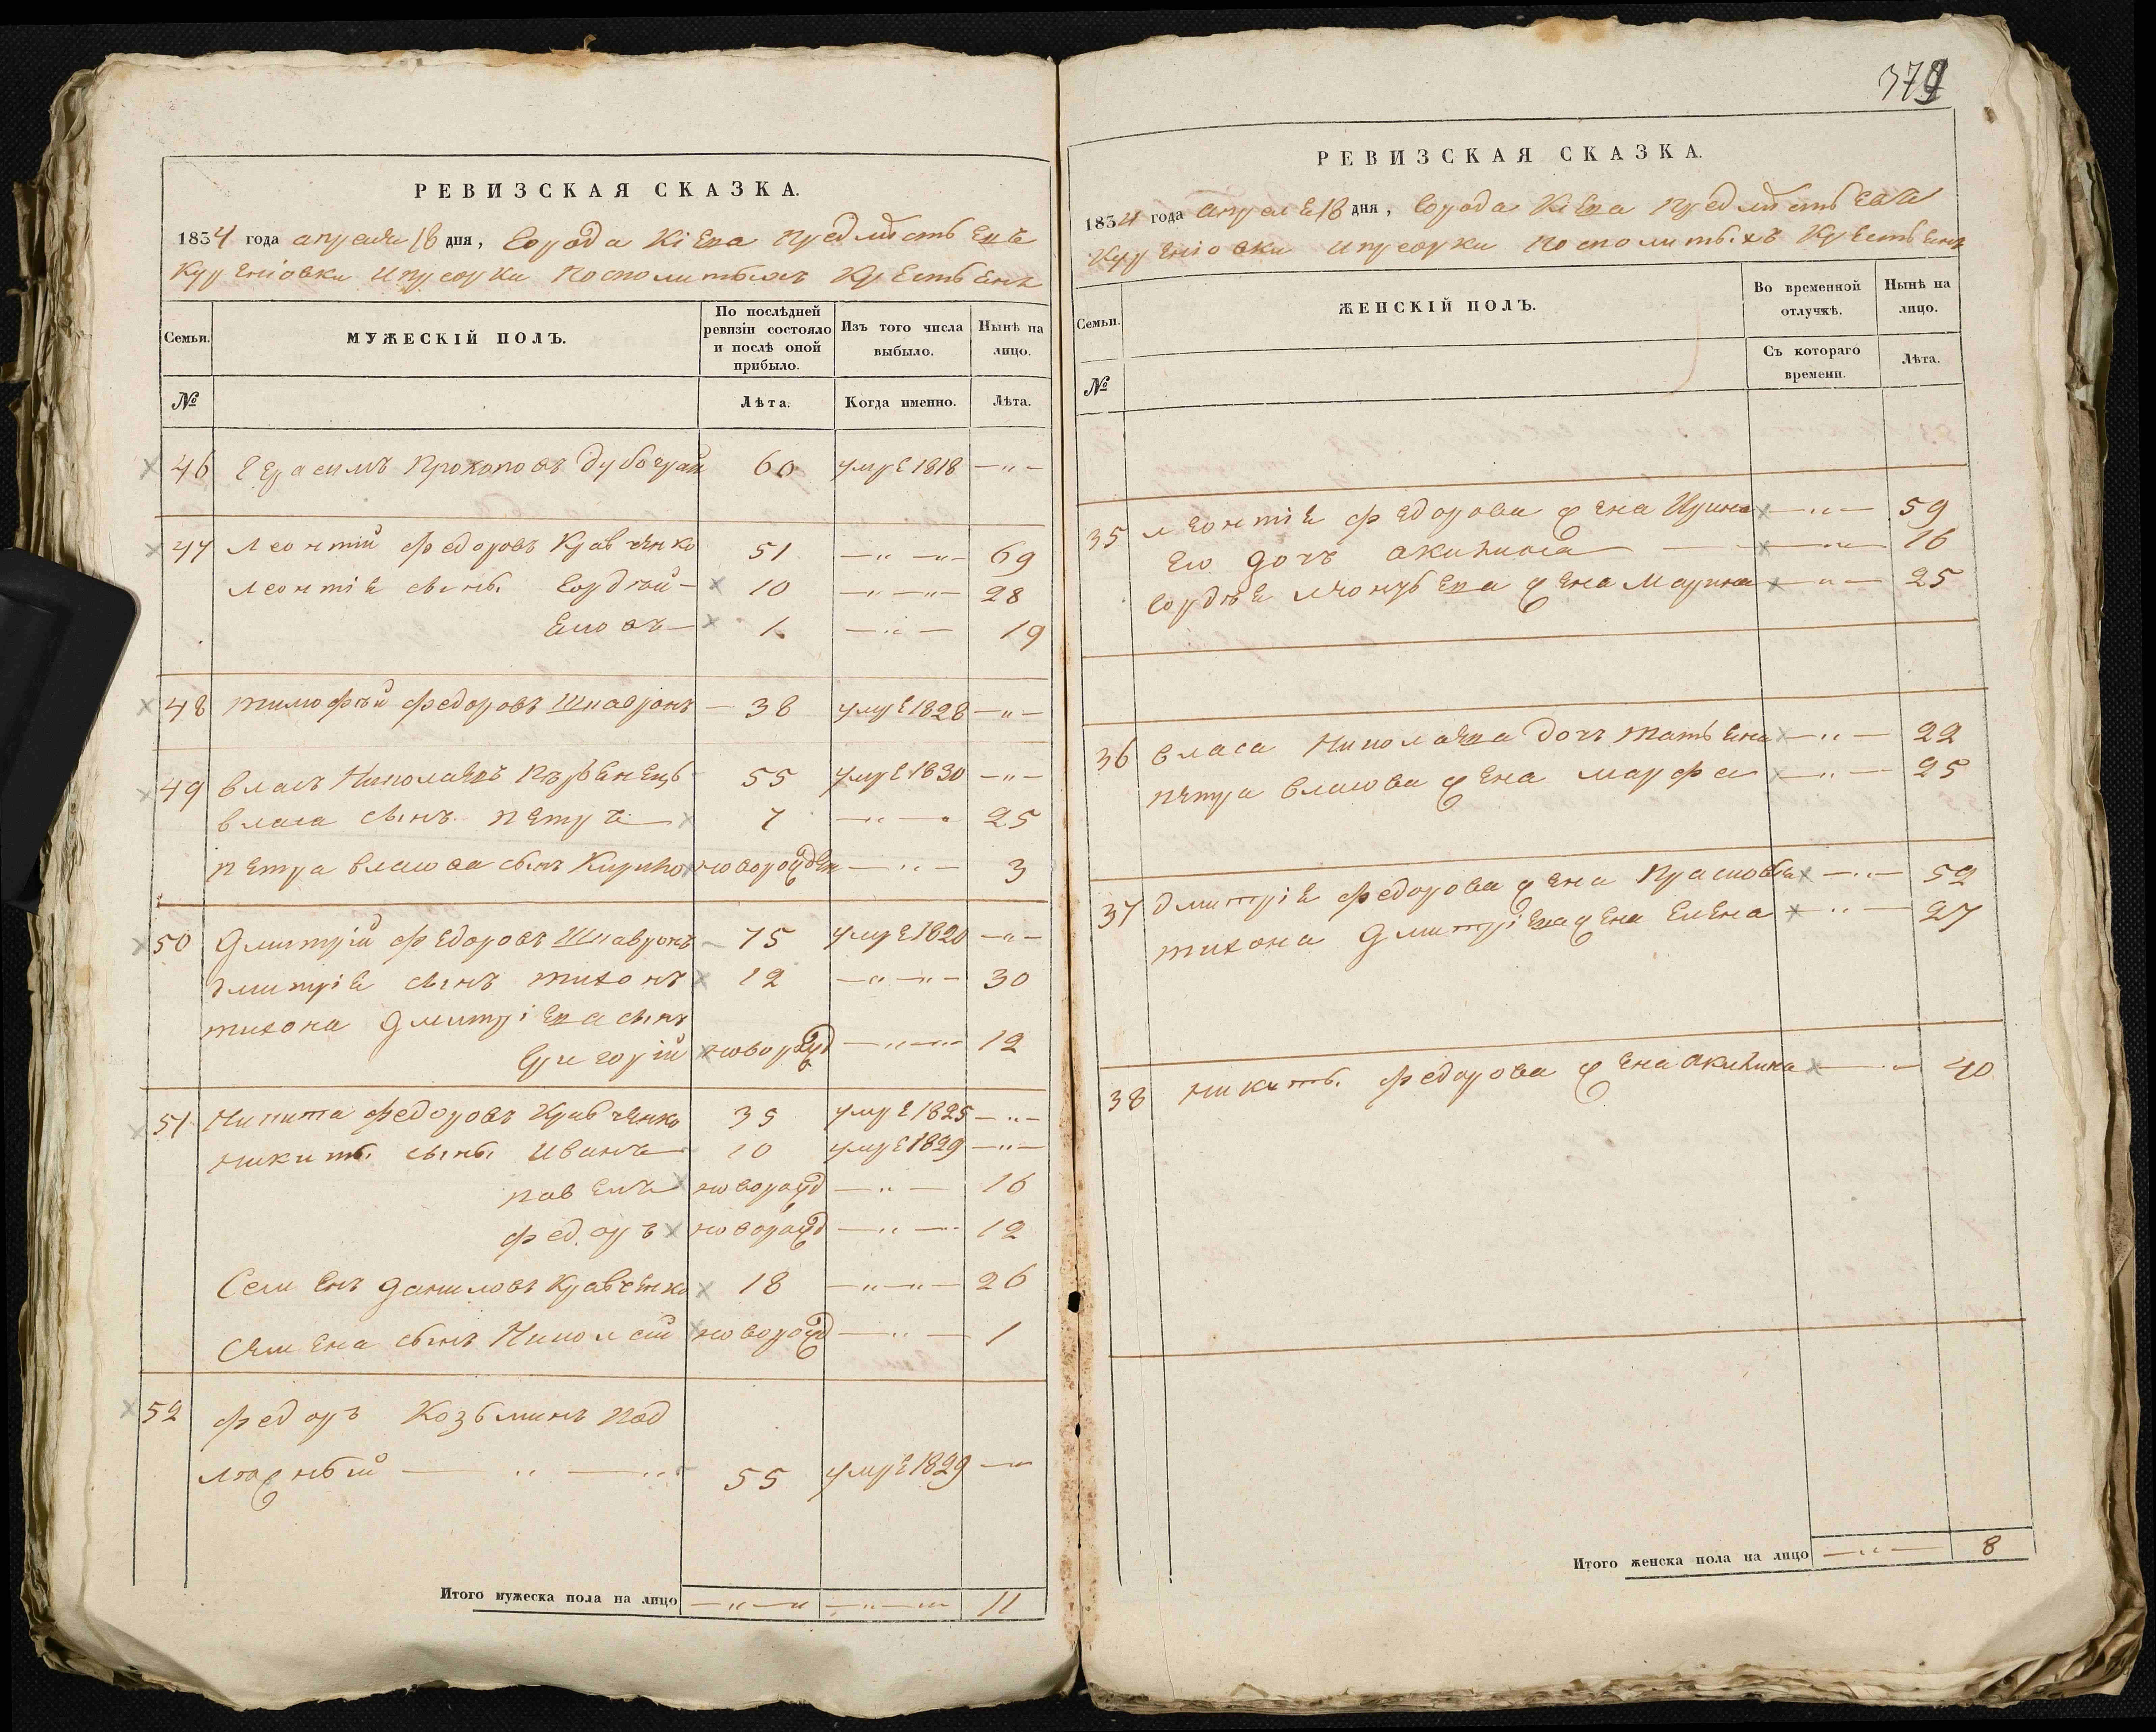 РЕВИЗСКАЯ СКАЗКА.
1834 года апреля 18 дня, города Кіева предмѣстьевъ
Куреніовки и пріорки посполитыхъ крестьенъ
Семьи.
МУЖЕСКІЙ ПОЛЪ.
По послѣдней ревизіи состояло и послѣ оной прибыло.
Изъ того числа выбыло.
Нынѣ на лицо.
№
Лѣта.
Когда именно.
Лѣта.
46 Герасимъ Прокоповъ 60 умре 1818 —"—
47 Леонтий Федоровъ Кравченко 51 —"—"— 69
Леонтіе сыны Гордѣй — 10 —"—"— 28
— 1 —"— 19
48 Тимофѣй Федоровъ Шпавронъ — 38 умре 1828 —"—
49 Власъ Николаевъ 55 умре 1830 —"—
Власа сынъ Петръ — 7 —"— 25
Петра Власова сынъ Кирило новорожден —"— 3
50 Дмитрій Федоровъ Шпавронъ — 75 умре 1820 —"—
Дмитріе сынъ Тихонъ 12 —"—"— 30
Тихона Дмитріева сынъ
Григорій новорожд —"—"— 12
51 Никита Федоровъ Кравченко 35 умре 1825 —"—
Никиты сыны Иванъ 10 умре 1829 —"—
Павелъ новорожд —"— 16
Федоръ новорожд —"— 12
Семенъ Даниловъ Кравченко 18 —"—"— 26
Семена сынъ Николай новорожд —"— 1
52 Федоръ Козьминъ Под
лужный —"—"— 55 умре 1829 —"—
Итого мужеска пола на лицо —"—"— —"—"— 11
379
РЕВИЗСКАЯ СКАЗКА.
1834 года апреля 18 дня, города Кіева предмѣстьевъ
Куреніовки и пріорки посполитыхъ крестьенъ
Семьи.
ЖЕНСКІЙ ПОЛЪ.
Во временной отлучкѣ.
Нынѣ на лицо.
№
Съ котораго времени.
Лѣта.
35 Леонтіе Федорова жена Ирина —"— 59
Его дочъ Акилина —"— 16
Гордѣе Леонтьева жена Марина —"— 25
36 Власа Николаева дочъ Татьена —"— 22
Петра Власова жена Марфа —"— 25
37 Дмитріе Федорова жена —"— 52
Тихона Дмитріева жена Елена —"— 27
38 Никиты Федорова жена Акилина —"— 40
Итого женска пола на лицо —"— 8